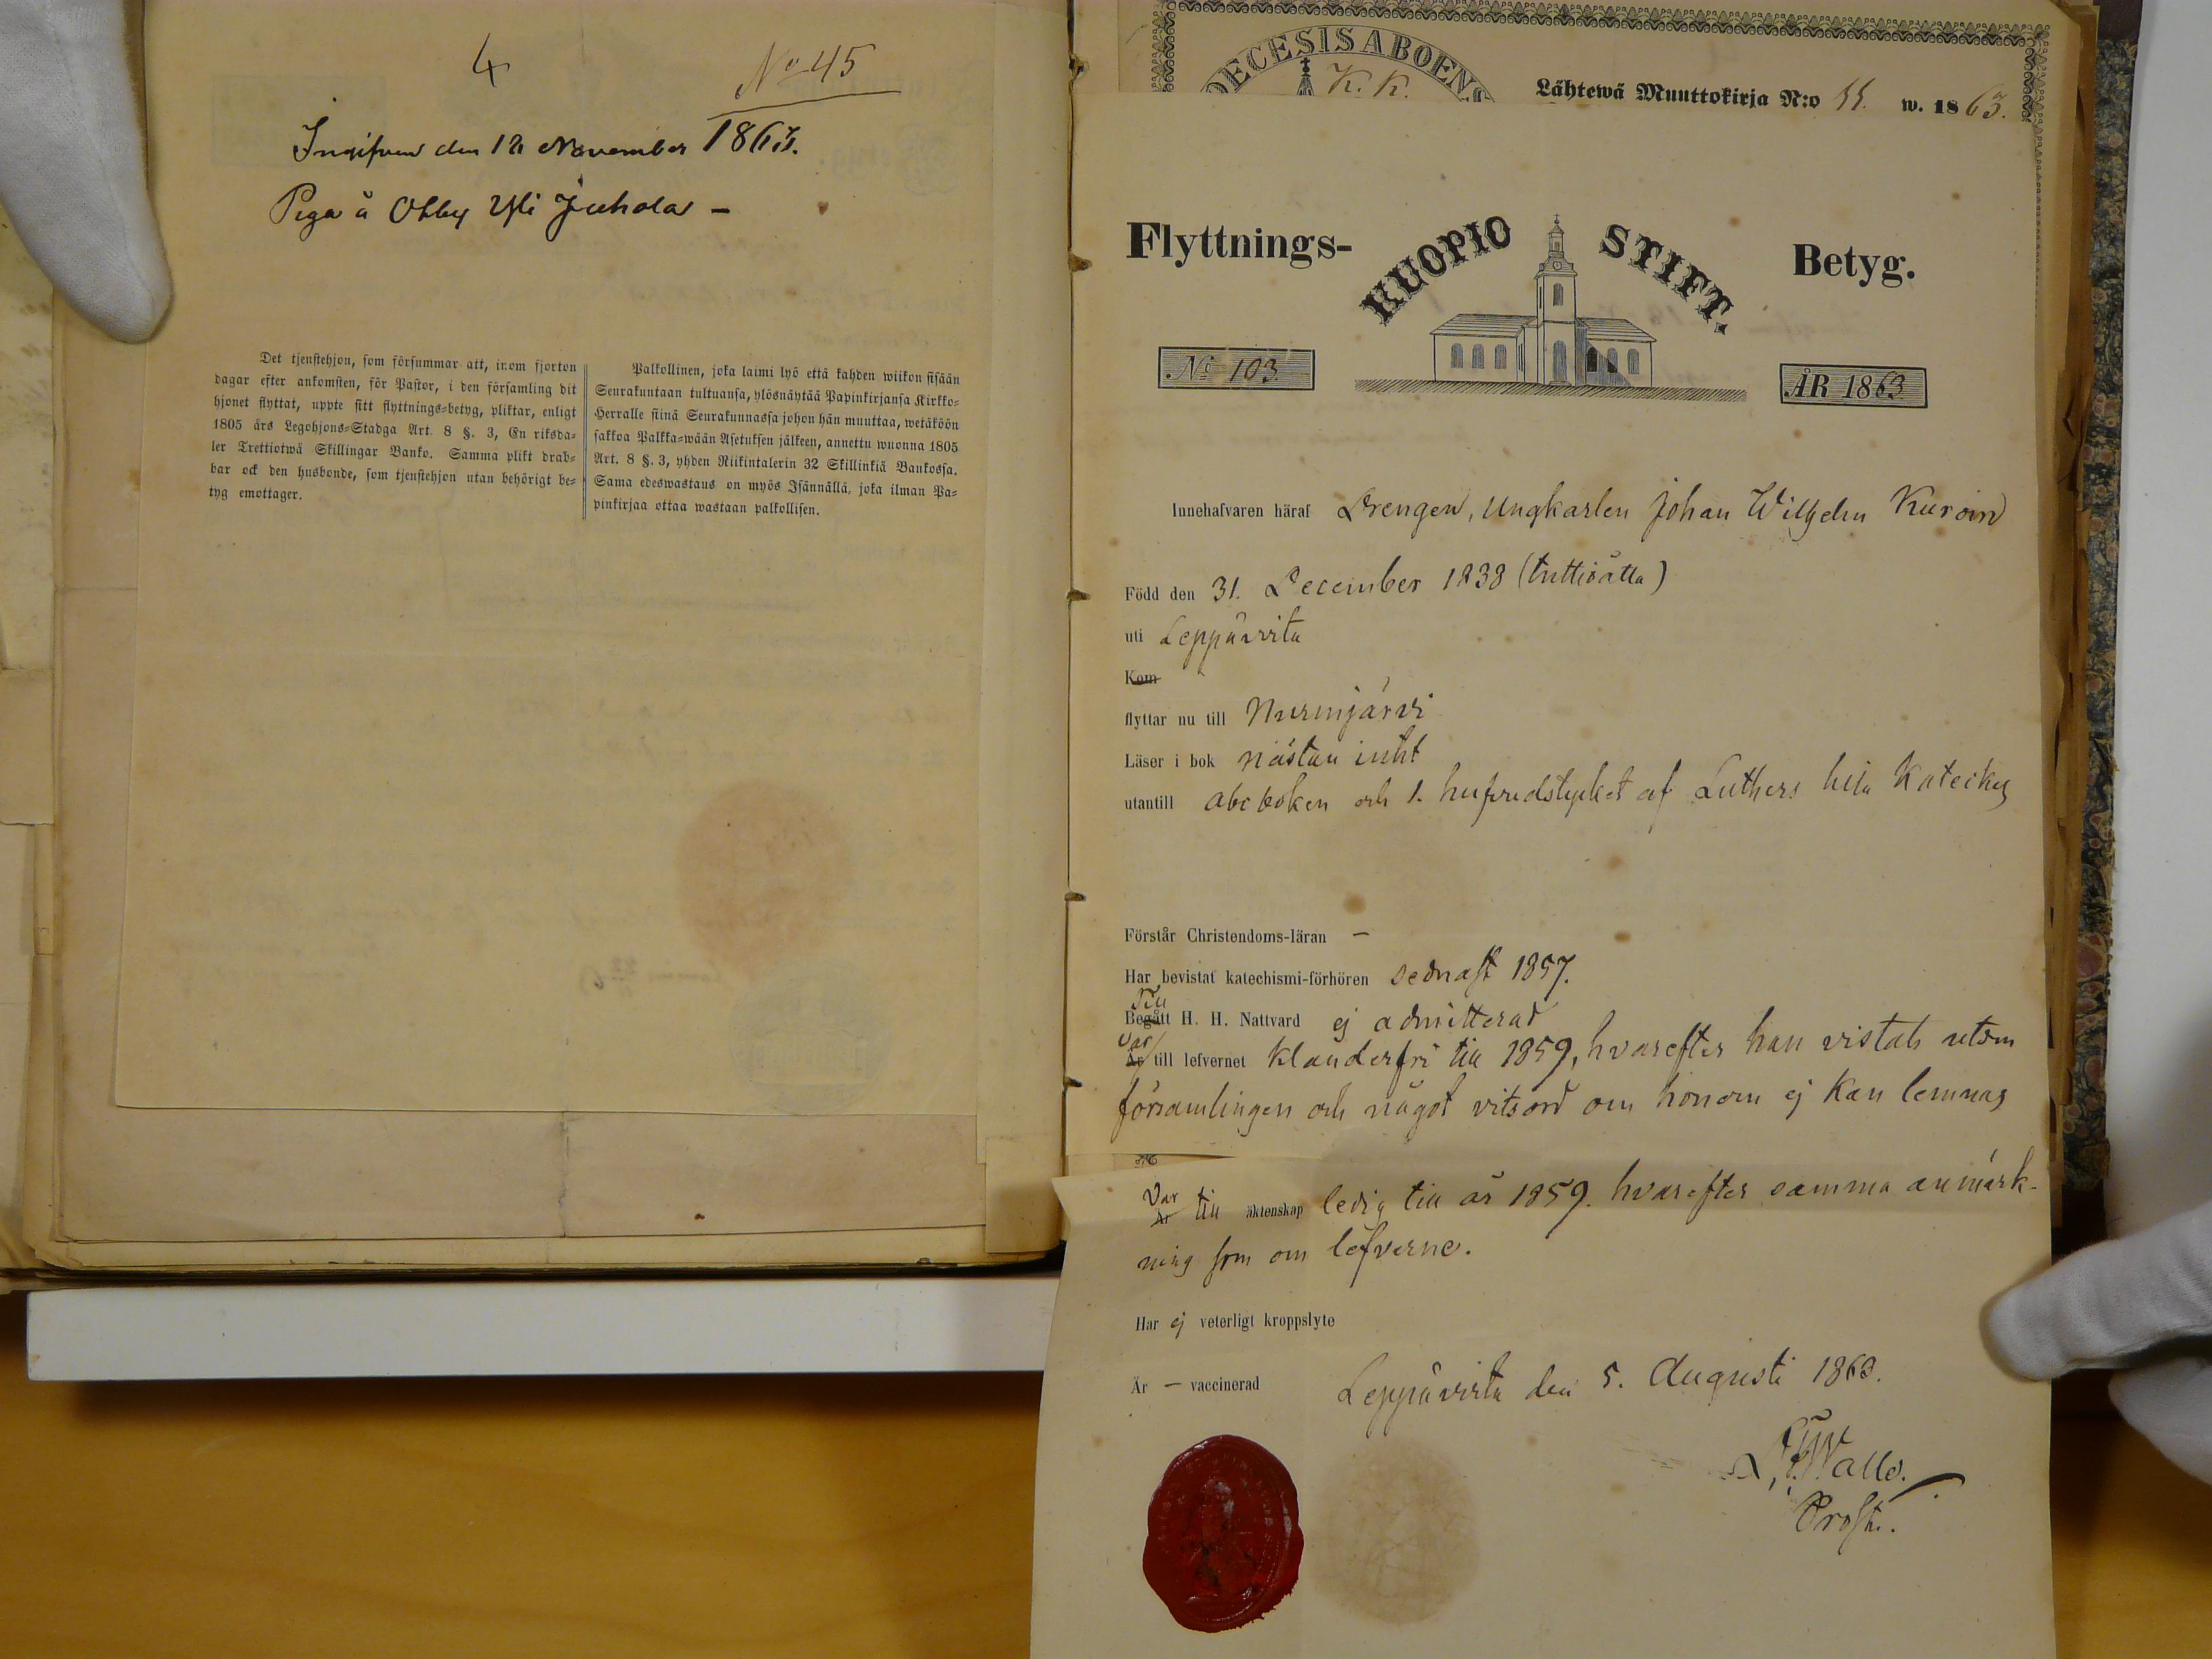 4
No 45
Ingifven den 12 November 1863.
Piga å Obby Yli Juhola –
Det tjenstehjon, som försummar att, inom fjorton
dagar efter ankomsten, för Pastor, i den församling dit
hjonet flyttat, uppte sitt flyttnings-betyg, pliktar, enligt
1805 års Legohjons-Stadga Art. 8 §. 3, En riksda-
ler Trettiotwå Skillingar Banko. Samma plikt drab-
bar ock den husbonde, som tjenstehjon utan behörigt be-
tyg emottager.
Palkollinen, joka laimi lyö että kahden wiikon sisään
Seurakuntaan tultuansa, ylösnäytää Papinkirjansa Kirkko-
Herralle siinä Seurakunnassa johon hän muuttaa, wetäköön
sakkoa Palkka-wään Asetuksen jälkeen, annettu wuonna 1805
Art. 8 §. 3, yhden Riikintalerin 32 Skillinkiä Bankossa.
Sama edeswastaus on myös Isännällä, joka ilman Pa-
pinkirjaa ottaa wastaan palkollisen.
DECESIS ABOENS
K. K.
Lähtewä Muuttokirja N:o 55. w. 1863.
Flyttnings- KUOPIO STIFT. Betyg.
No 103.
ÅR 1863
Innehafvaren häraf Drengen, Ungkarlen Johan Wilhelm Kuroin
Född den 31. December 1838 (trettioåtta)
uti Leppävirta
Kom
flyttar nu till Nurmijärvi
Läser i bok nästan intet
utantill abc boken och 1. hufvudstycket af Luthers lilla Kateches
Förstår Christendoms-läran –
Har bevistat katechismi-förhören sednast 1857.
Till
Begått H. H. Nattvard ej admitterad
Var
Är till lefvernet klanderfri till 1859, hvarefter han vistats utom
församlingen och något vitsord om honom ej kan lemnas
Var
Är till äktenskap ledig till år 1859. hvarefter samma anmärk-
ning som om lefverne.
Har ej veterligt kroppslyte
Är – vaccinerad
Leppävirta den 5. Augusti 1863.
Prost.